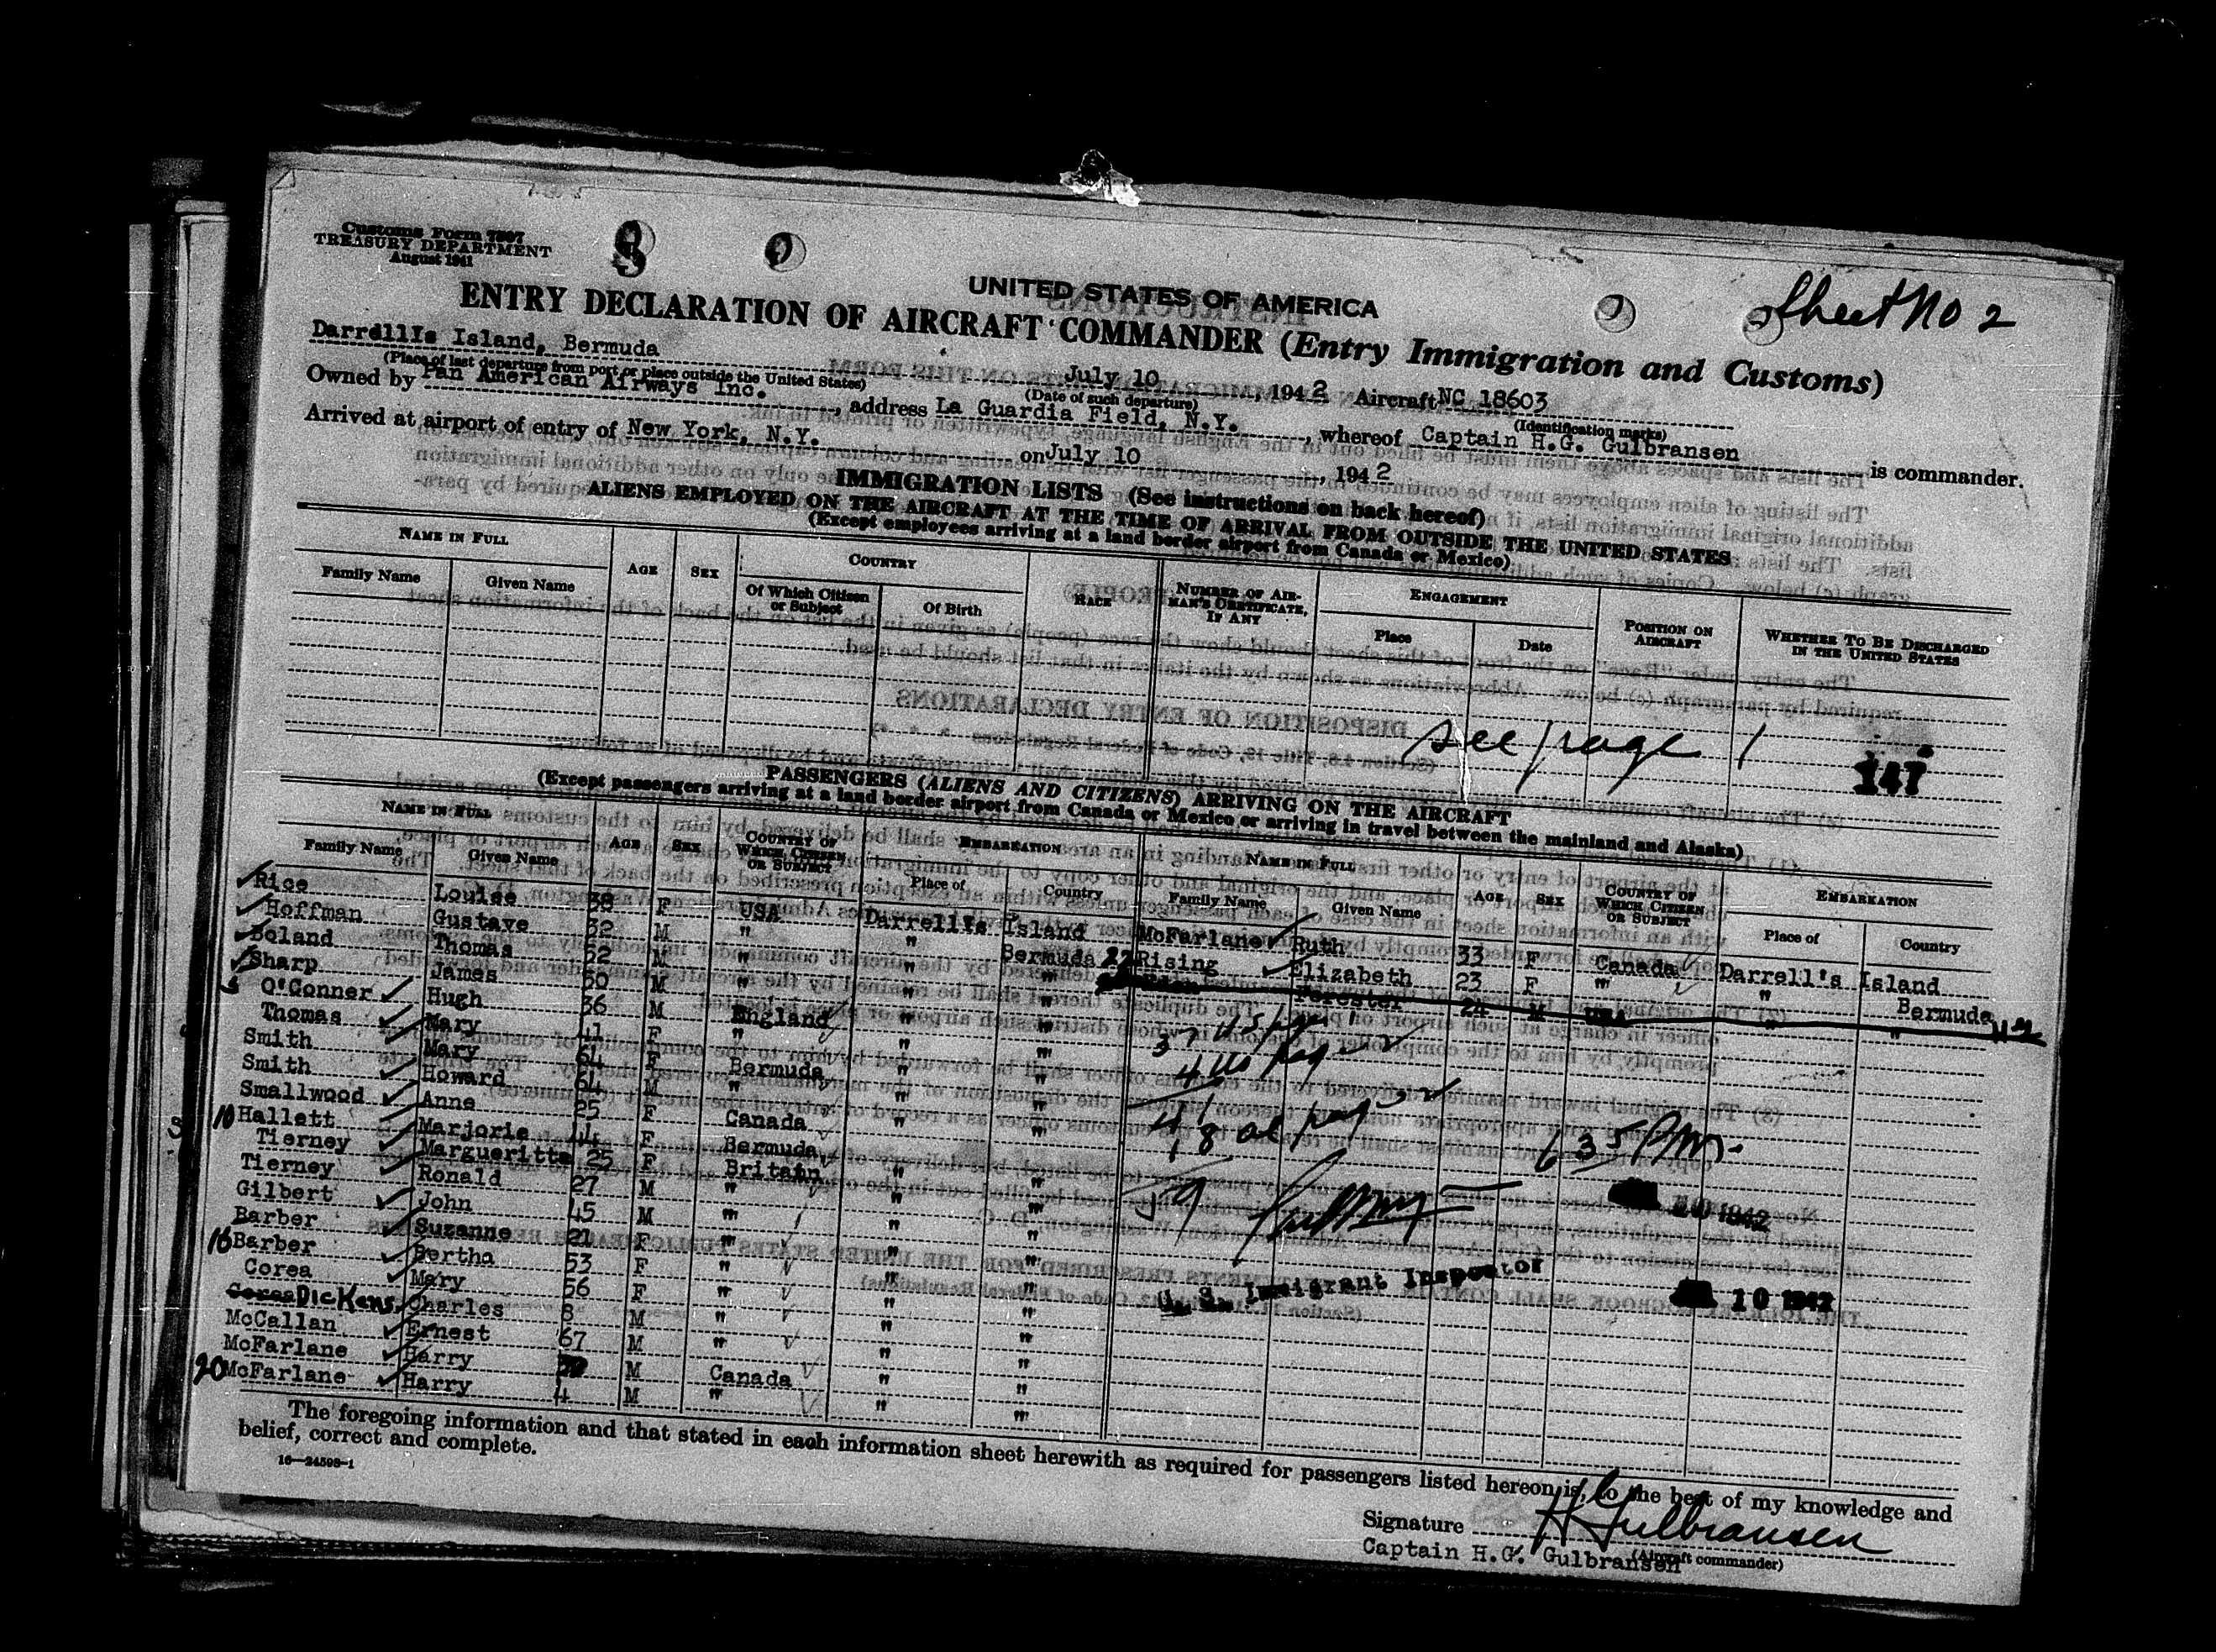 Customs Form 7507
TREASURY DEPARTMENT
August 1941
Sheet No 2
UNITED STATES OF AMERICA
ENTRY DECLARATION OF AIRCRAFT COMMANDER (Entry Immigration and Customs)
Darrell's Island, Bermuda July 10, 1942 Aircraft NC 18603
(Place of last departure from port or place outside the United States) (Date of such departure) (Identification marks)
Owned by Pan American Airways Inc., address La Guardia Field, N.Y., whereof Captain H.G. Gulbransen is commander.
Arrived at airport of entry of New York, N.Y. on July 10, 1942
IMMIGRATION LISTS (See instructions on back hereof)
ALIENS EMPLOYED ON THE AIRCRAFT AT THE TIME OF ARRIVAL FROM OUTSIDE THE UNITED STATES
(Except employees arriving at a land border airport from Canada or Mexico)
NAME IN FULL AGE SEX COUNTRY RACE NUMBER OF AIRMAN'S CERTIFICATE, IF ANY ENGAGEMENT POSITION ON AIRCRAFT WHETHER TO BE DISCHARGED IN THE UNITED STATES
Family Name Given Name Of Which Citizen or Subject Of Birth Place Date
see page 1
147
PASSENGERS (ALIENS AND CITIZENS) ARRIVING ON THE AIRCRAFT
(Except passengers arriving at a land border airport from Canada or Mexico or arriving in travel between the mainland and Alaska)
NAME IN FULL AGE SEX COUNTRY OF WHICH CITIZEN OR SUBJECT EMBARKATION NAME IN FULL AGE SEX COUNTRY OF WHICH CITIZEN OR SUBJECT EMBARKATION
Family Name Given Name Place of Country Family Name Given Name Place of Country
Rice Louise 38 F USA Darrell's Island
Hoffman Gustave 32 M " " Bermuda
Boland Thomas 52 M " " "
Sharp James 50 M " " "
O'Conner Hugh 36 M England " "
Thomas Mary 41 F " " "
Smith Mary 64 F Bermuda " "
Smith Howard 64 M " " "
Smallwood Anne 25 F Canada " "
10 Hallett Marjorie 44 F Bermuda
Tierney Margueritte 25 F Britain " "
Tierney Ronald 27 M " " "
Gilbert John 45 M " " "
Barber Suzanne 21 F " " "
Barber Bertha 53 F " " "
Corea Mary 56 F " " "
Corea Dickens Charles 8 M " " "
McCallan Ernest 67 M " " "
McFarlane Harry M Canada " "
20 McFarlane Harry 4 M " " "
McFarlane Ruth 33 F Canada Darrell's Island
22 Rising Elizabeth 23 F " " Bermuda
Forester 24 M USA " "
37 US pg 1
4 us pag 2
41
18 al pag 2
59
6 35 PM.
10 1942
U. S. Immigrant Inspector
10 1942
The foregoing information and that stated in each information sheet herewith as required for passengers listed hereon is, to the best of my knowledge and
belief, correct and complete.
16—24598-1
Signature H Gulbransen
(Aircraft commander)
Captain H.G. Gulbransen